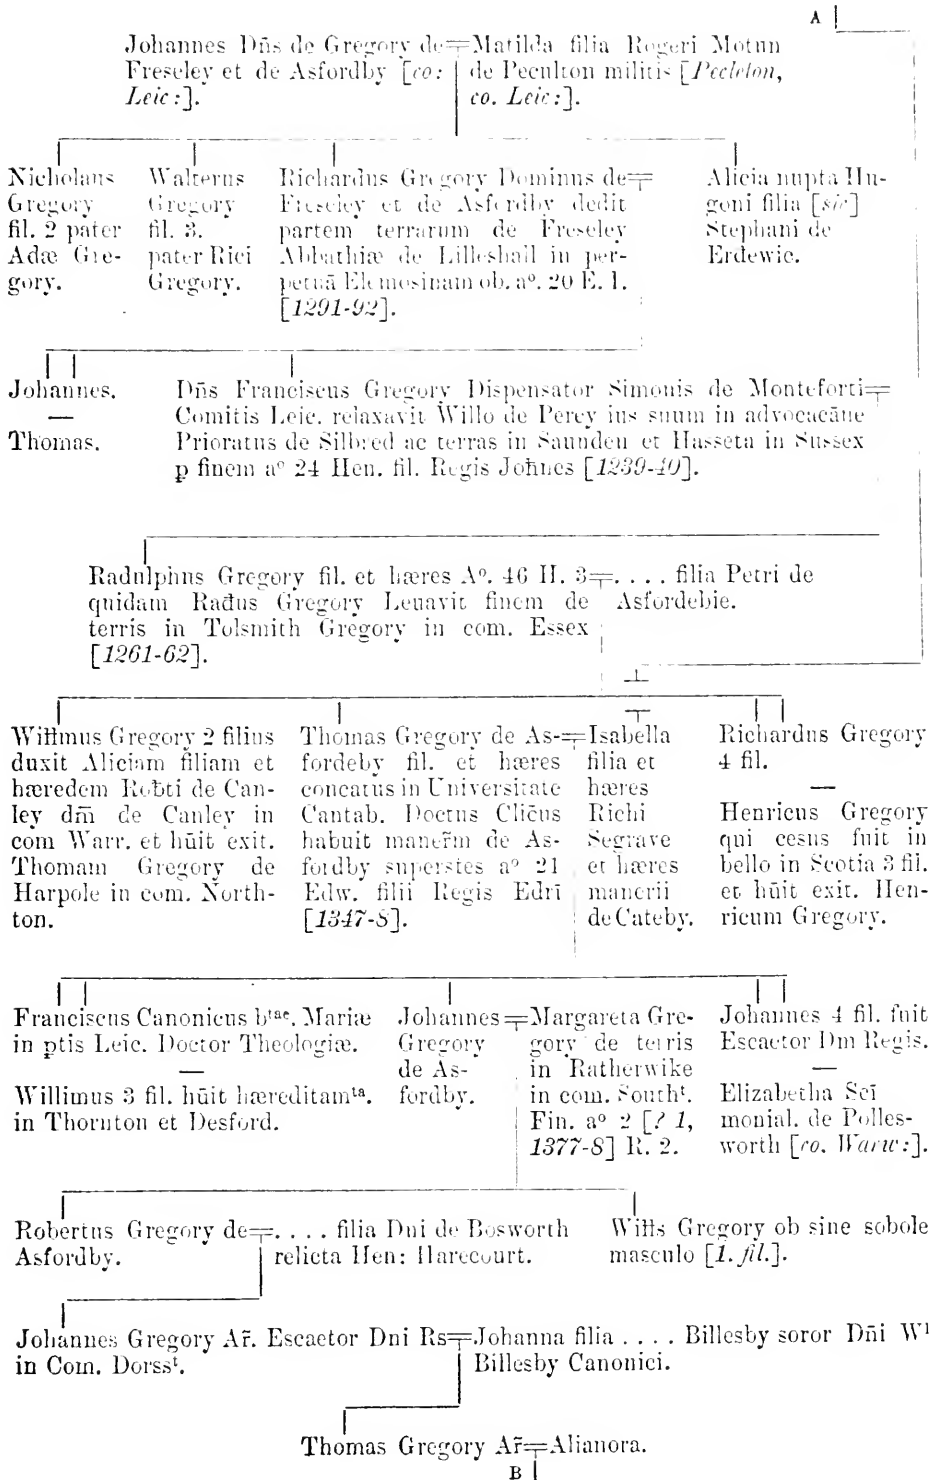 A
Johannes Dñs de Gregory de Matilda filia Rogeri Motun
Freseley et de Asfordby [co: de Peculton militis [Peeleton,
Leic:]. co. Leic:].
Nicholaus
Gregory
fil. 2 pater
Adæ Gre-
gory.
Walterus
Gregory
fil. 3.
pater Rici
Gregory.
Richardus Gregory Dominus de
Freseley et de Asfordby dedit
partem terrarum de Freseley
Abbathiæ de Lilleshall in per-
petuā Elemosinam ob. aº. 20 E. 1.
[1291-92].
Alicia nupta Hu-
goni filia [sic]
Stephani de
Erdewic.
Johannes.
—
Thomas.
Dñs Franciscus Gregory Dispensator Simonis de Monteforti
Comitis Leic. relaxavit Willo de Percy ius suum in advocacāne
Prioratus de Silbred ac terras in Saunden et Hasseta in Sussex
p finem aº 24 Hen. fil. Regis Johñes [1239-40].
Radulphus Gregory fil. et hæres Aº. 46 H. 3
quidam Radus Gregory Leuavit finem de
terris in Tolsmith Gregory in com. Essex
[1261-62].
. . . . filia Petri de
Asfordebie.
Willmus Gregory 2 filius
duxit Aliciam filiam et
hæredem Robti de Can-
ley dm̄ de Canley in
com Warr. et hūit exit.
Thomam Gregory de
Harpole in com. North-
ton.
Thomas Gregory de As-
fordeby fil. et hæres
concatus in Universitate
Cantab. Doctus Clicūs
habuit manerm̃ de As-
fordby superstes aº 21
Edw. filii Regis Edri
[1347-8].
Isabella
filia et
hæres
Richi
Segrave
et hæres
manerii
de Cateby.
Richardus Gregory
4 fil.
—
Henricus Gregory
qui cesus fuit in
bello in Scotia 3 fil.
et hūit exit. Hen-
ricum Gregory.
Franciscus Canonicus bᵗᵃᵉ. Mariæ
in ptis Leic. Doctor Theologiæ.
—
Willimus 3 fil. hūit hæreditamᵗᵃ.
in Thornton et Desford.
Johannes
Gregory
de As-
fordby.
Margareta Gre-
gory de terris
in Ratherwike
in com. Southᵗ.
Fin. aº 2 [? 1,
1377-8] R. 2.
Johannes 4 fil. fuit
Escaetor Dm Regis.
—
Elizabetha Scī
monial. de Polles-
worth [co. Warw:].
Robertus Gregory de
Asfordby.
. . . . filia Dni de Bosworth
relicta Hen: Harecourt.
Wills Gregory ob sine sobole
masculo [1. fil.].
Johannes Gregory Ar̃. Escaetor Dni Rs
in Com. Dorssᵗ.
Johanna filia . . . . Billesby soror Dñi Wˡ
Billesby Canonici.
Thomas Gregory Ar̃ Alianora.
B